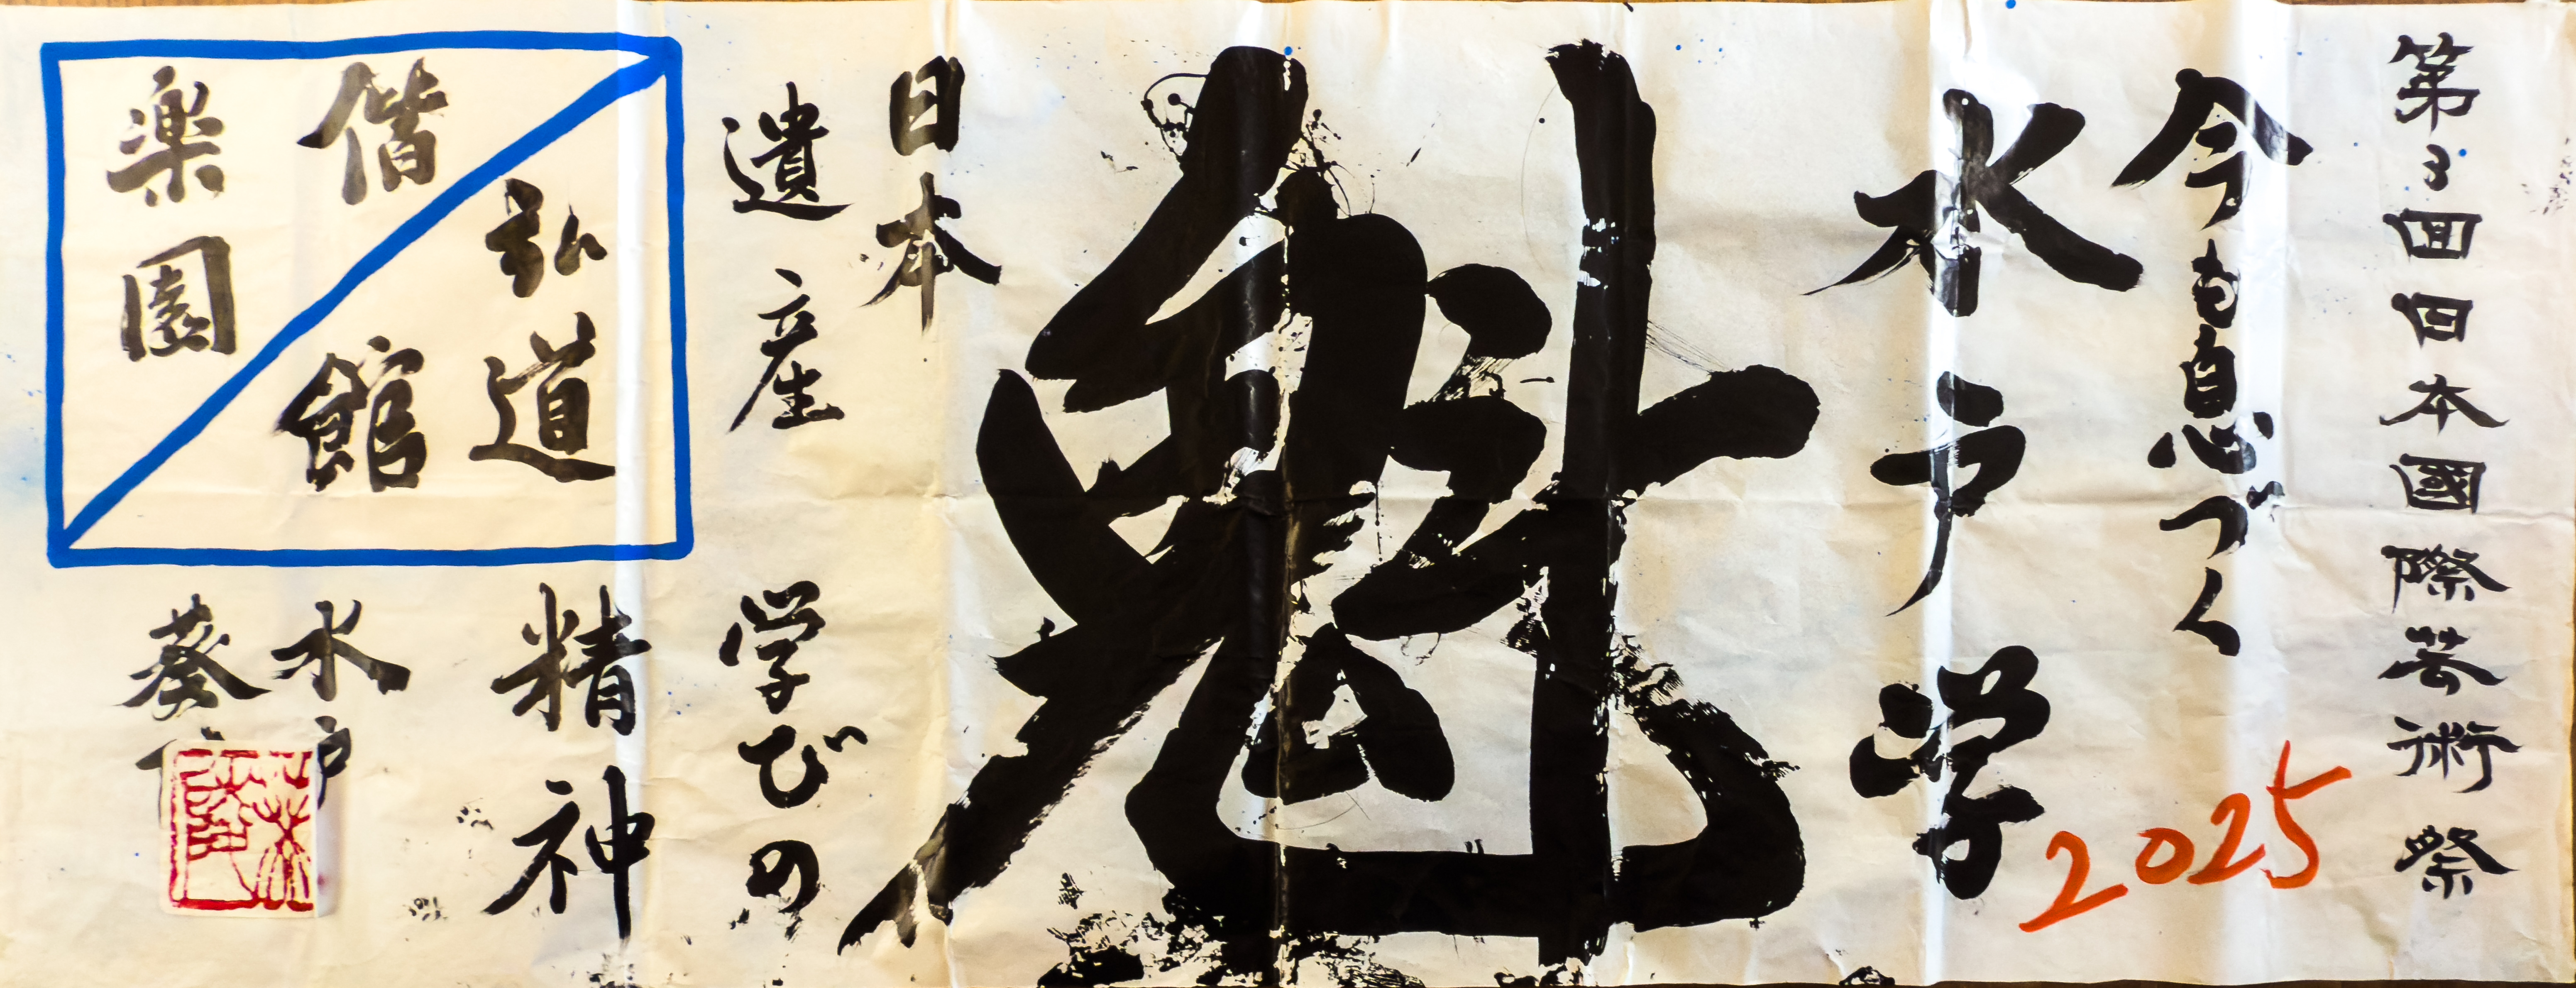 第3回日本國際芸術祭
今も息づく
2025
水戸学
魁
日本
遺産
学びの
精神
弘道
館
偕
楽園
水戸
葵